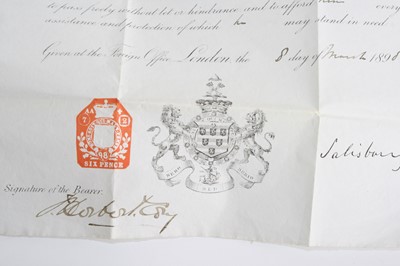 to pass freely without let or hindrance and to afford him every
assistance and protection of which he may stand in need
Given at the Foreign Office, London, the 8 day of March 1898
7 3
98
SIX PENCE
SERO SED SERIO
Salisbury
Signature of the Bearer.
J. Herbert Cory